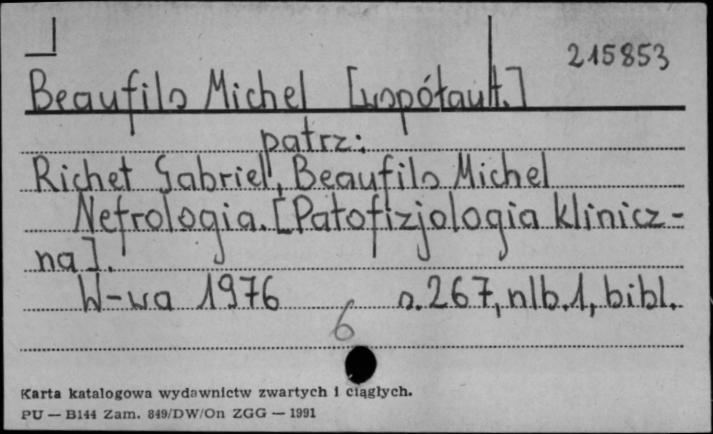 215853
Beaufils Michel [współaut.]
patrz:
Richet Gabriel, Beaufils Michel
Nefrologia. [Patofizjologia klinicz-
na].
W-wa 1976 s. 267, nlb. 1, bibl.
6
Karta katalogowa wydawnictw zwartych i ciągłych.
PU — B144 Zam. 849/DW/On ZGG — 1991